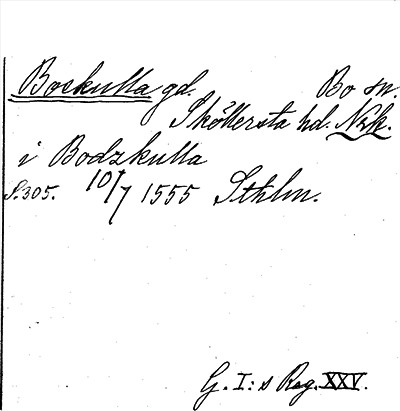 Boskulla gd. Bo sn.
Sköllersta hd. Nrk.
i Bodzkulla
S. 305. 10/7 1555 Sthlm.
G. I:s Reg. XXV.